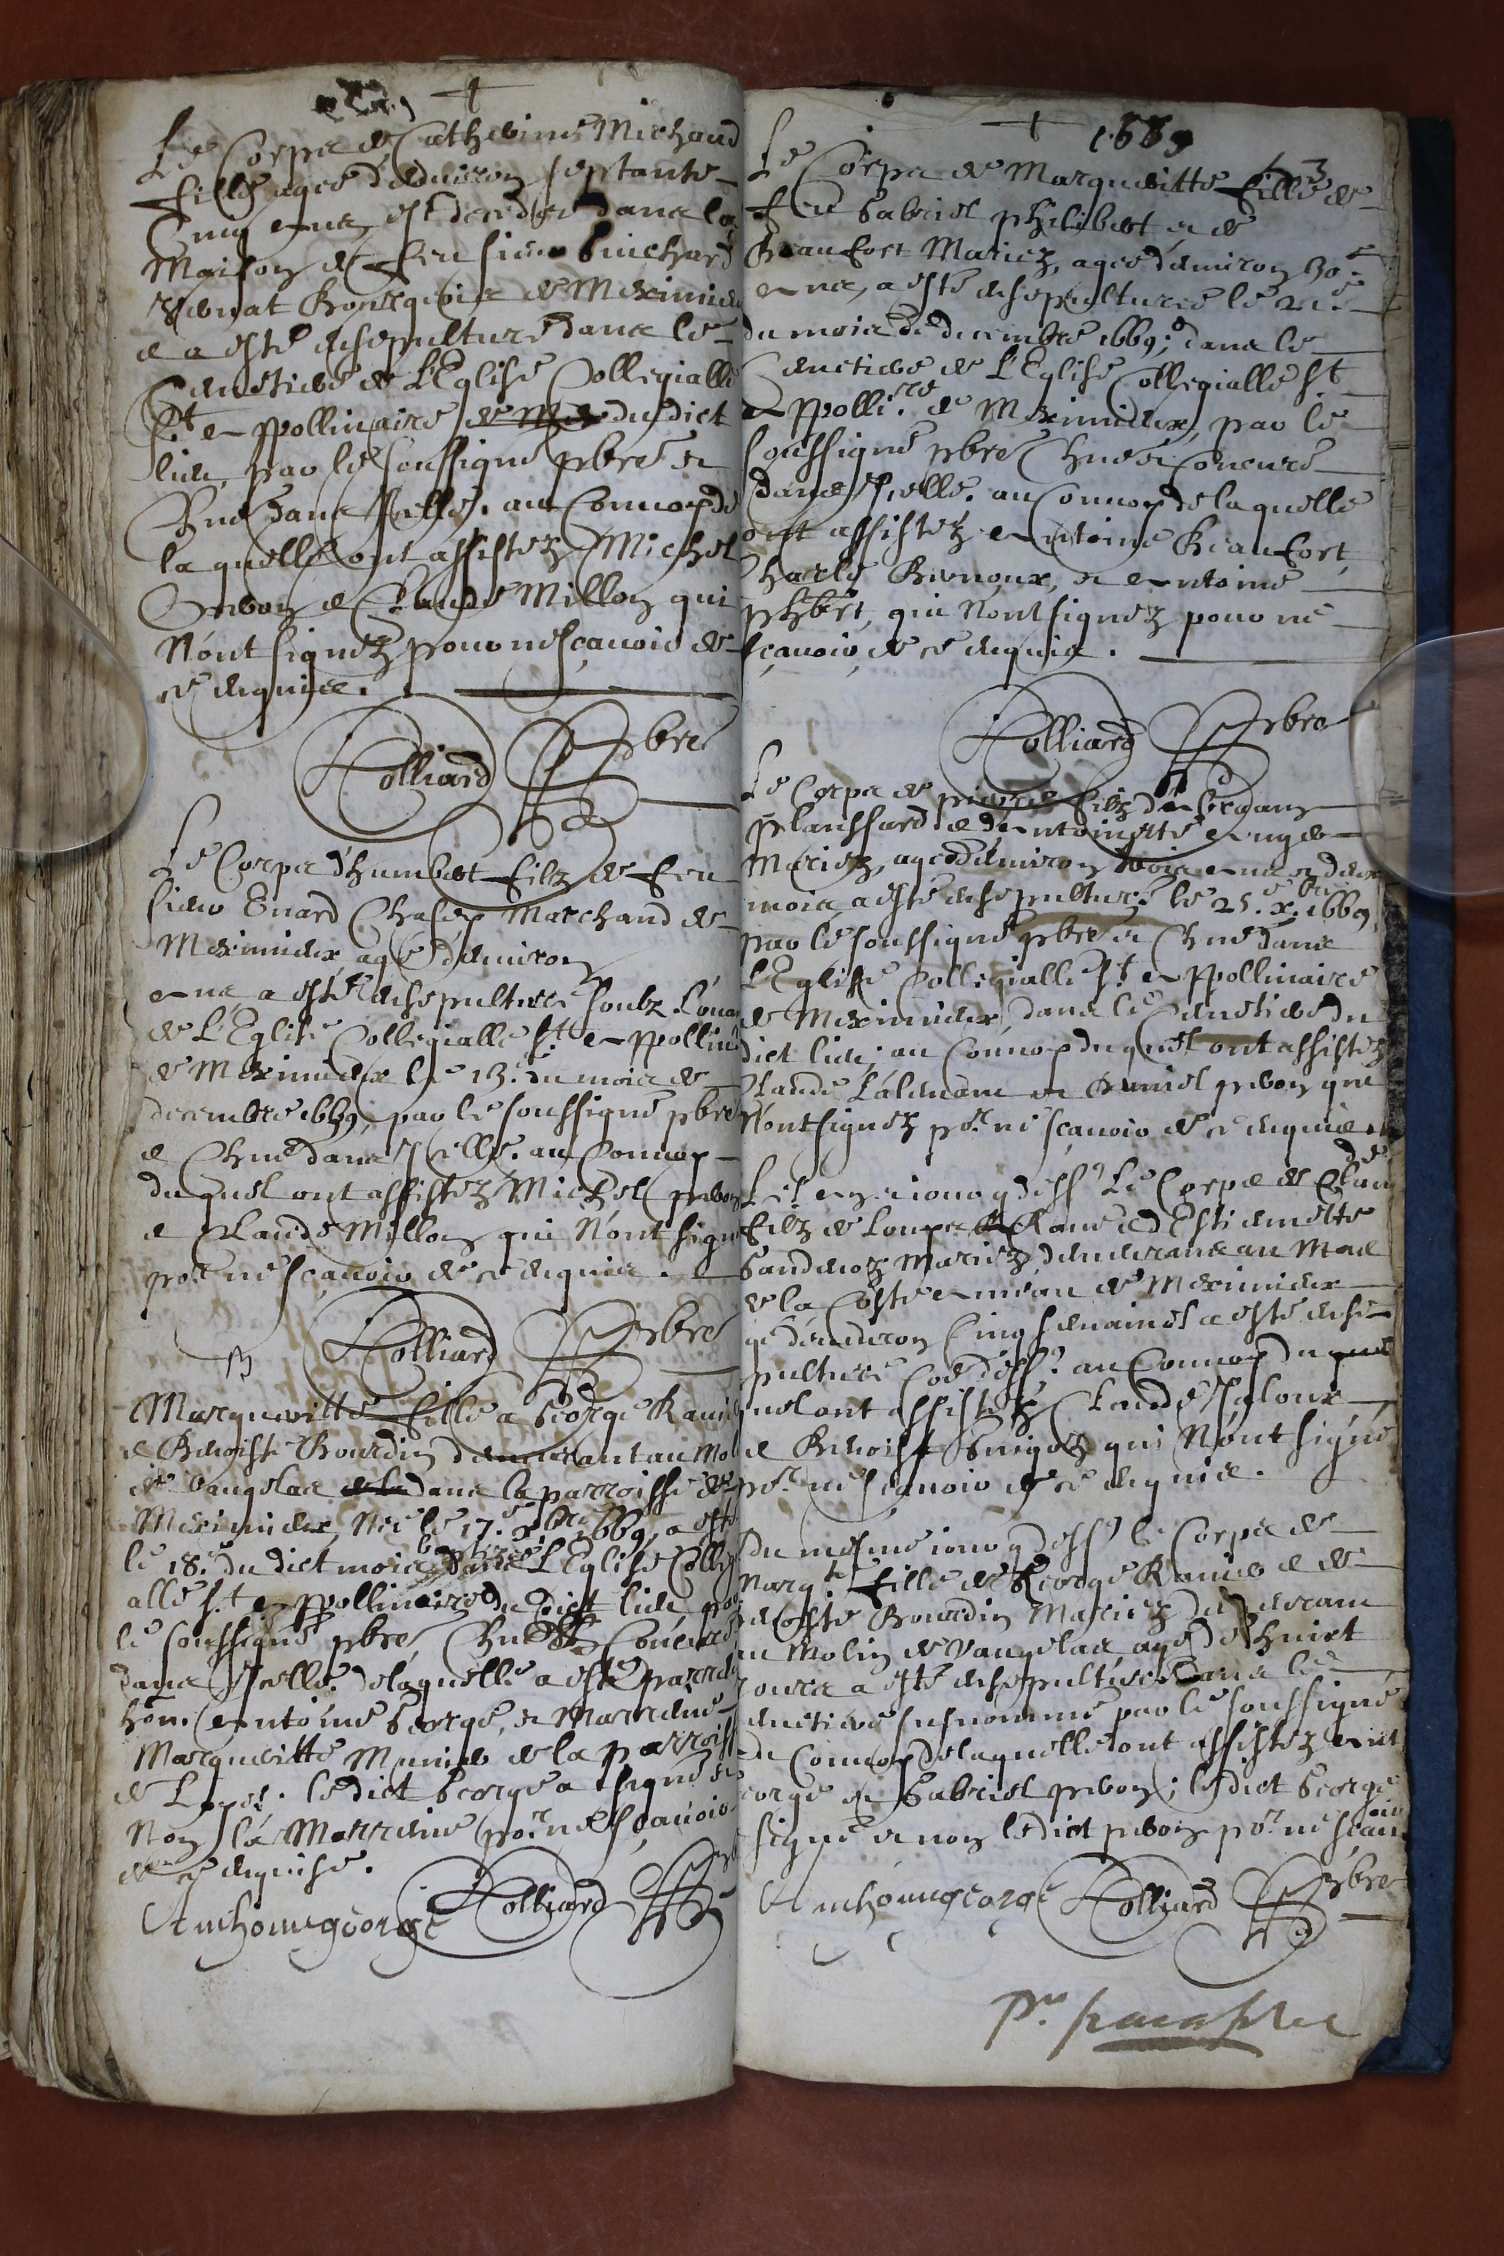 Le Corps de Catherine Michaud
fille agee d'environ septante
Cinq ans est decedee dans la
Maison de feu sieur Guichard
bourgeois de Meximieu
e a esté ensepulturé dans le
Cemetiere de L'Eglise Collegialle
St Appollinaire de Mex dudict
lieu, par le soussigné pbre et
dans Icelle. au Convoy de
laquelle ont assistez Michel
prevoz e Claude Millon qui
N'ont signez pour ne sçavoir de
ce enquis.
Colliard pbre
Le Corps d'humbert filz de feu
sieur Enard Chasey Marchand de
Meximieux agé d'environ
ans a esté ensepulturé soubz
de L'Eglise Collegialle St Appollin
de Meximieux le 13.e du mois de
decembre 1669, par le soussigné pbre
e dans Icelle. au Convoy
duquel ont assistez Michel prevoz
e Claude Millon qui N'ont sign
por ne sçavoir de ce enquis.
Colliard pbre
Margueritte fille a George Ranie
e Benoiste Bourdin demeurant au Mol
de Vaugelas de la dans la parroisse de
Meximieux, Née le 17.e xbre 1669, a esté
le 18.e du dict mois baptisée dans L'Eglise Colle
alle St Appollinaire du dict lieu par
le soussigné pbre
dans Icelle. de laquelle a esté parrain
hon. Antoine George, et Marreine
Margueritte Munier de la parroiss
de Loyes. le dict George a signé et
Non la Marreine por ne sçavoir
de ce enquise.
Anthoine george Colliard pbre
1669
Le Corps de Margueritte fille de
feu Gabriel philibert e de
Beaufort Mariez, agee d'environ 30.
ans, a esté ensepulturee le 21.e
du mois de decembre 1669; dans le
Cemetiere de L'Eglise Collegialle St
Appolli.re de Meximieux, par le
soussigné pbre
dans Icelle. au Convoy de laquelle
ont assistez Antoine Beaufort,
Charles Bernoux, et Antoine
phbert, qui N'ont signez pour ne
sçavoir, de ce enquis.
Colliard pbre
Le Corps de pierre filz de
Planssard e d'Antoinette
Mariez, agé d'environ trois ans et deux
mois a esté ensepulturé le 25.e xbre 1669,
par le soussigné pbre et dans
L'Eglise Collegialle St Appollinaire
de Meximieux, dans le Cemetiere du
dict lieu; au Convoy duquel ont assistez
Claude et prevoz qui
N'ont signez por ne sçavoir de ce enquis
Les an et jour q dess' Le Corps de Claude
filz de e d'Estiennette
Mariez demeurans au Mas
de la Coste de Meximieux
agé d'environ Cinq semaines a esté ense
pulturé Coe dess': au Convoy du quel
quel ont assistez Claude Jaloux
e Benoist qui N'ont signé
por ne sçavoir de ce enquis.
Du mesme jour q dess' le Corps de
Marg.te fille de George Ranier e de
Benoiste Bourdin Mariez demeurans
au Molin de Vaugelas, agé de huict
jours a esté ensepulturee dans le
Cemetiere susnommé par le soussigné
au Convoy de laquelle ont assistez Ant
George et Gabriel prevoz; le dict George
signé et non le dict prevoz por ne sçavoir
Anthoine george Colliard pbre